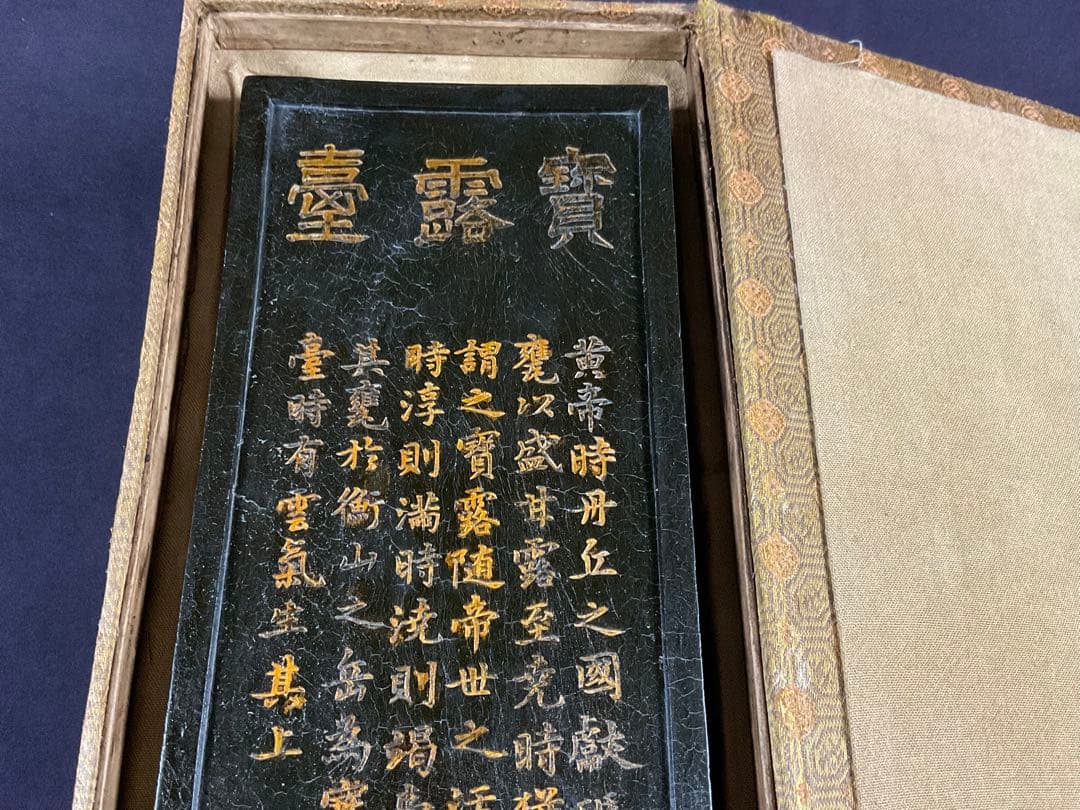 寶露臺
黄帝時丹丘之國獻
甕以盛甘露至堯時
謂之寶露随帝世之
時淳則滿時澆則竭
其甕於衡山之岳為
臺時有雲氣生其上